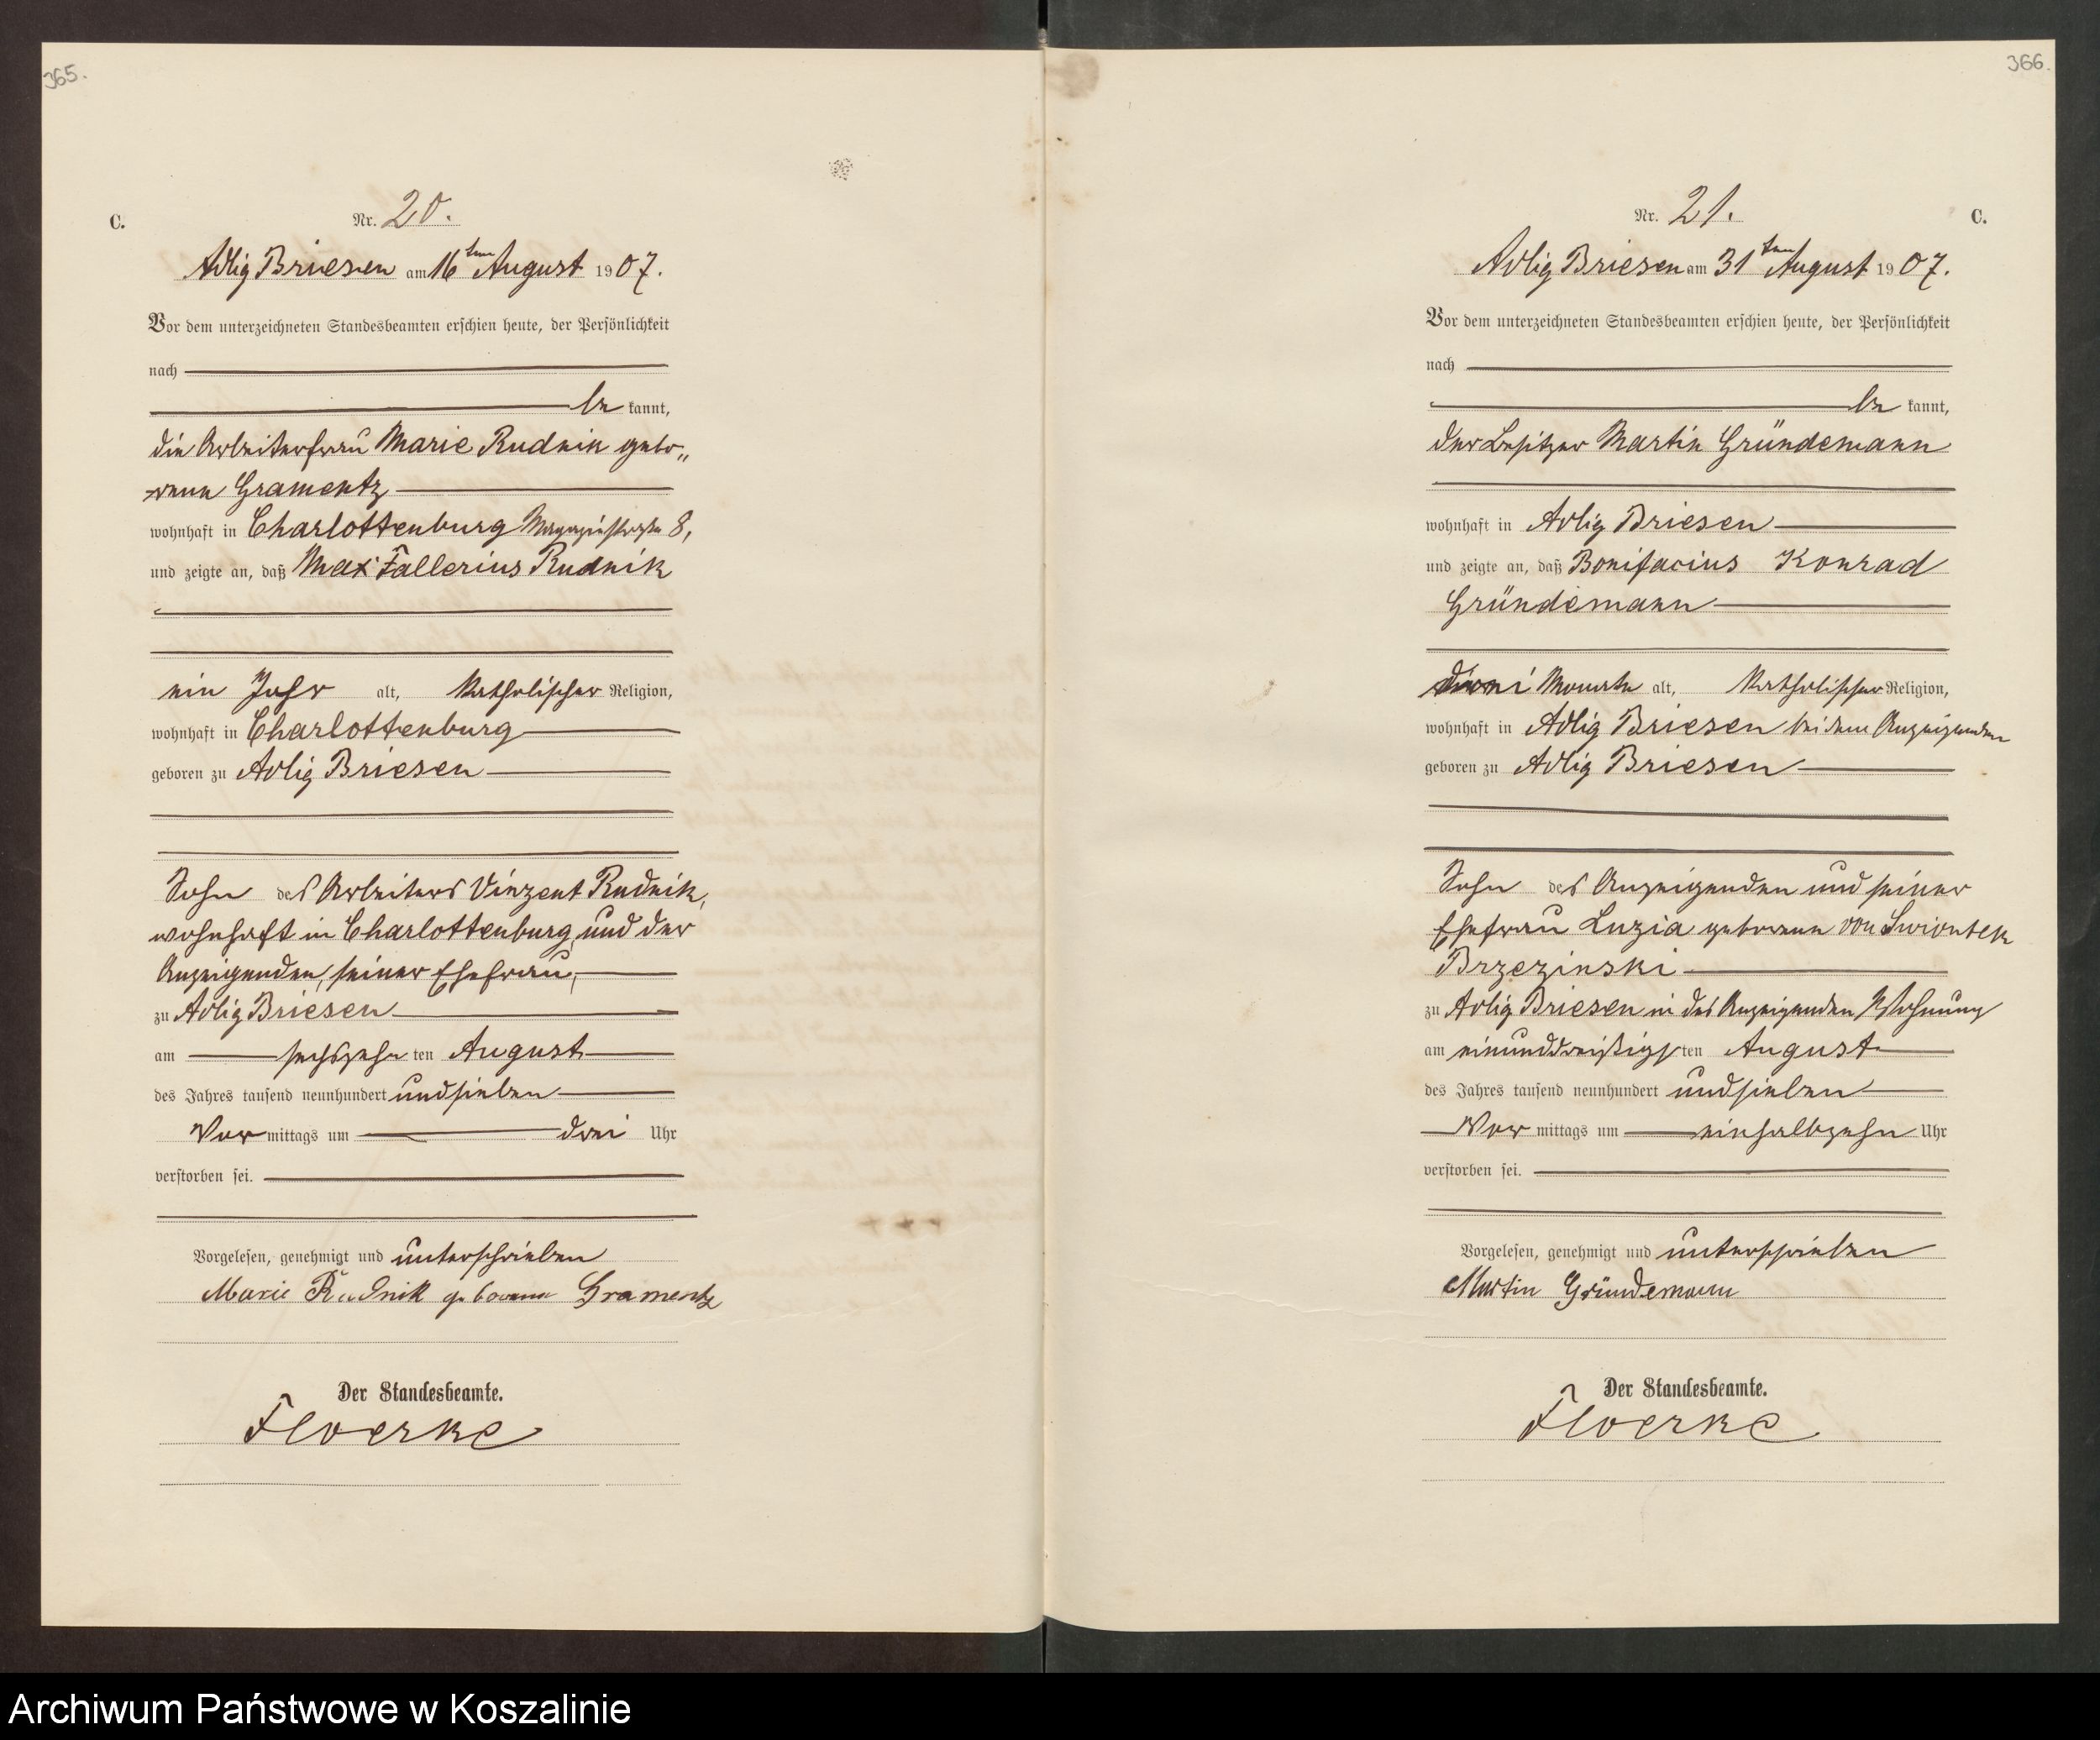 365.
C.
Nr. 20.
Adlig Briesen am 16ten August 1907.
Vor dem unterzeichneten Standesbeamten erschien heute, der Persönlichkeit
nach
be kannt,
die Arbeiterfrau Marie Rudnik gebo„
rene Gramentz
wohnhaft in Charlottenburg Magazinstraße 8,
und zeigte an, daß Max Fallerius Rudnik
ein Jahr alt, katholischer Religion,
wohnhaft in Charlottenburg
geboren zu Adlig Briesen
Sohn des Arbeiters Vinzent Rudnik,
wohnhaft in Charlottenburg und der
Anzeigenden, seiner Ehefrau,
zu Adlig Briesen
am sechszehn ten August
des Jahres tausend neunhundert undsieben
Vor mittags um drei Uhr
verstorben sei.
Vorgelesen, genehmigt und unterschrieben
Marie Rudnik geborene Gramentz
Der Standesbeamte.
Floerke
366.
Nr. 21.
C.
Adlig Briesen am 31ten August 1907.
Vor dem unterzeichneten Standesbeamten erschien heute, der Persönlichkeit
nach
be kannt,
der Besitzer Martin Gründemann
wohnhaft in Adlig Briesen
und zeigte an, daß Bonifacius Konrad
Gründemann
drei Monate alt, katholischer Religion,
wohnhaft in Adlig Briesen bei dem Anzeigenden
geboren zu Adlig Briesen
Sohn des Anzeigenden und seiner
Ehefrau Luzia geborene von
Brzezinski
zu Adlig Briesen in des Anzeigenden Wohnung
am einunddreißigs ten August
des Jahres tausend neunhundert undsieben
Vor mittags um einhalbzehn Uhr
verstorben sei.
Vorgelesen, genehmigt und unterschrieben
Martin Gründemann
Der Standesbeamte.
Floerke
Archiwum Państwowe w Koszalinie